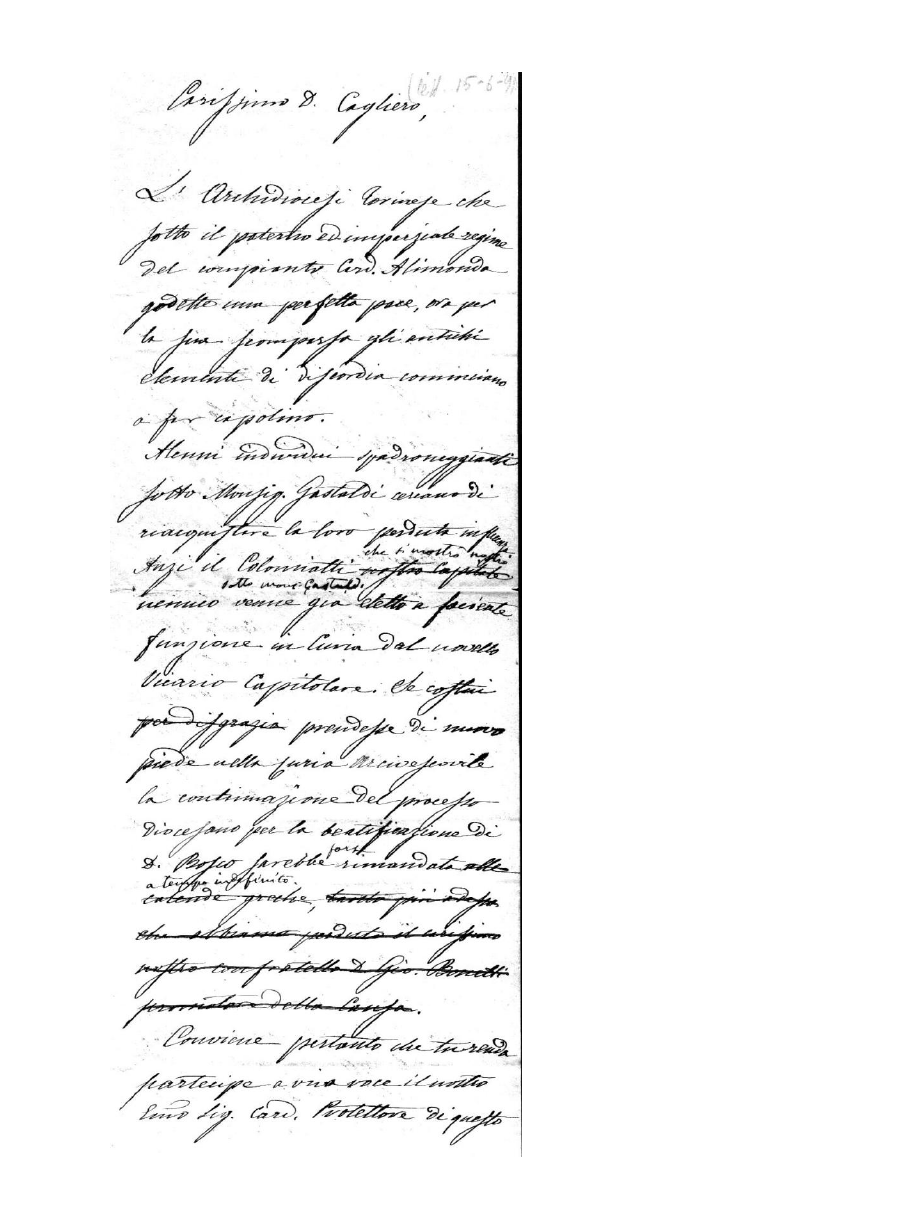 15-6-91
Carissimo D. Cagliero,
L' Archidiocesi Torinese che
sotto il paterno ed imparziale regime
del compianto Card. Alimonda
godette una perfetta pace, ora per
la sua scomparsa gli antichi
elementi di discordia cominciano
a far capolino.
Alcuni individui spadroneggianti
sotto Monsig. Gastaldi cercano di
riacquistare la loro perduta influenza
che si mostrò nostro
Anzi il Colomiatti nostro Capitale
sotto mons. Gastaldi.
nemico venne già eletto a fare
funzione in Curia dal novello
Vicario Capitolare. Se costui
per disgrazia prendesse di nuovo
piede nella Curia Arcivescovile
la continuazione del processo
Diocesano per la beatificazione di
forse
D. Bosco sarebbe rimandata alle
a tempo indefinito.
calende greche, tanto più adesso
che abbiamo perduto il carissimo
nostro confratello D. Gio. Bonetti
promotore della Causa.
Conviene pertanto che tu renda
partecipe a viva voce il nostro
Emo Sig. Card. Protettore di questo